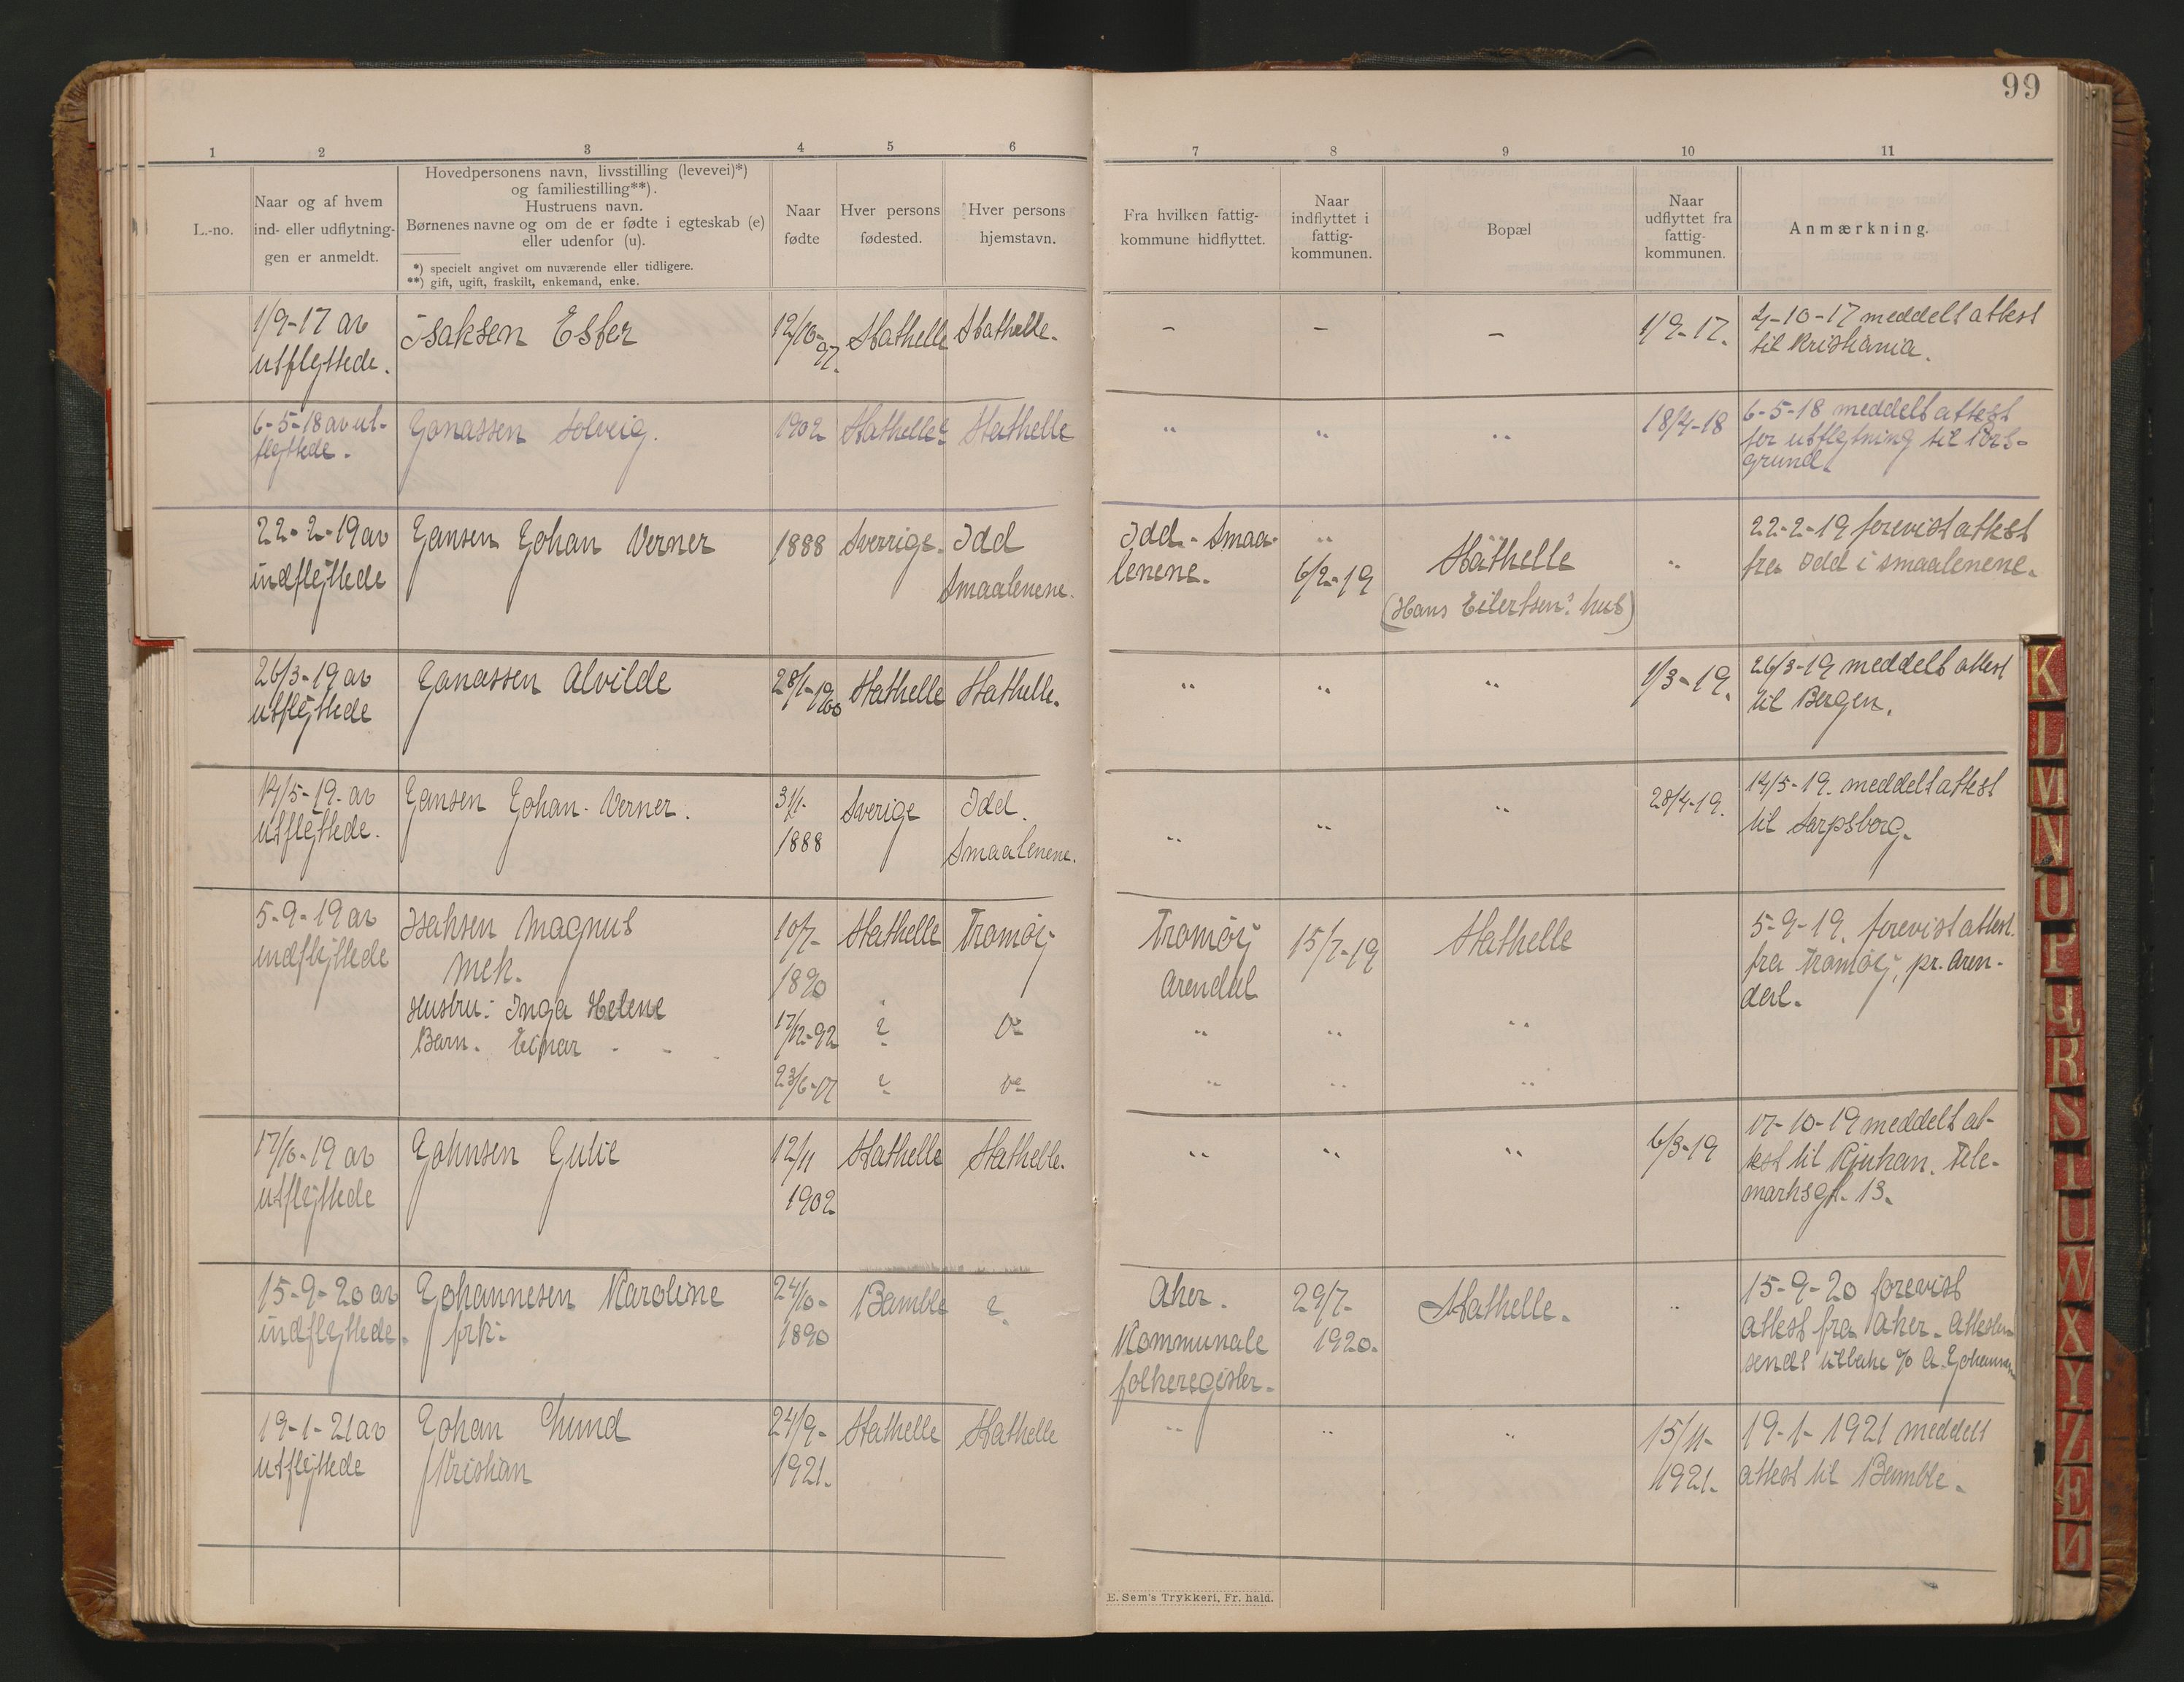 99
1
2
3
4
5
6
7
8
9
10
11
L.-no.
Naar og af hvem
ind- eller udflytning-
gen er anmeldt.
Hovedpersonens navn, livsstilling (levevei)*)
og familiestilling**).
Hustruens navn.
Børnenes navne og om de er fødte i egteskab (e)
eller udenfor (u).
*) specielt angivet om nuværende eller tidligere.
**) gift, ugift, fraskilt, enkemand, enke.
Naar
fødte
Hver persons
fødested.
Hver persons
hjemstavn.
Fra hvilken fattig-
kommune hidflyttet.
Naar
indflyttet i
fattig-
kommunen.
Bopæl
Naar
udflyttet fra
fattig-
kommunen.
Anmærkning.
1/9-17 av
utflyttede.
Isaksen Ester
12/10-97.
Stathelle
Stathelle.
-
-
-
1/9-17.
2-10-17 meddelt attest
til Kristiania.
6-5-18 av ut-
flyttede.
Jonassen Solveig.
1902
Stathelle
Stathelle
"
"
"
18/4-18
6-5-18 meddelt attest
for utflytning til Pors-
grund.
22-2-19 av
indflyttede
Jansen Johan Verner
1888
Sverrige.
Idd
Smaalenene.
Idd - Smaa-
lenene.
"
6/2-19
Stathelle
(Hans Eilertsen's hus)
"
22-2-19 forevist attest
fra Idd i Smaalenene.
26/3-19 av
utflyttede
Jonassen Alvilde
28/1-1900
Stathelle
Stathelle.
"
"
"
1/3-19.
26/3-19 meddelt attest
til Bergen.
14/5-19. av
utflyttede.
Jansen Johan Verner.
31/1-
1888
Sverige
Idd.
Smaalenene.
"
"
"
28/4-19.
14/5-19. meddelt attest
til Sarpsborg.
5-9-19 av
indflyttede
Isaksen Magnus
Mek.
Hustru: Inga Helene
Barn. Einar - - -
10/7-
1890
17/12-92
23/6-17
Stathelle
?
?
Tromøy
do
do
Tromøy
Arendal
"
"
15/7-19
"
"
Stathelle
"
"
5-9-19. forevist attest.
fra Tromøy, pr. Aren-
dal.
17/10-19 av
utflyttede
Johnsen Julie
12/11
1902
Stathelle
Stathelle.
"
"
"
6/3-19
17-10-19 meddelt at-
test til Rjukan. Tele-
marksgt. 13.
15-9-20 av
indflyttede.
Johannesen Karoline
frk.
24/10-
1890
Bamble
?
Aker.
Kommunale
folkeregister.
29/7-
1920.
Stathelle.
"
15-9-20 forevist
attest fra Aker. Attesten
sendt tilbake % A. Johannesen
19-1-21 av
utflyttede
Johan Lund
Kristian
24/9-
1921.
Stathelle
Stathelle
"
"
"
15/11-
1921.
19-1-1921 meddelt
attest til Bamble.
E. Sem's Trykkeri, Fr. hald.
K
L
M
N
O
P
Q
R
S
T
U
W
X
Y
Z
Æ